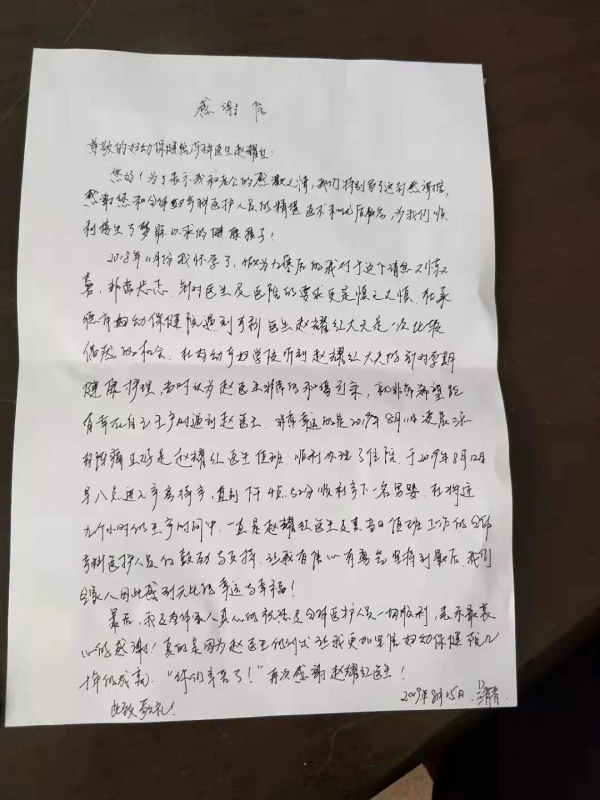 感谢信
尊敬的妇幼保健院产科医生赵耀红:
您好!为了表示我和老公的感激之情,我们特别写了这封感谢信,
感谢您和全体产科医护人员的精湛医术和优质服务,为我们顺
利接生了梦寐以求的健康孩子!
2018年11月份我怀孕了,做为九零后的我对于这个消息又惊又
喜,非常忐忑,针对医生及医院的要求更是慎之又慎,在承
德市妇幼保健院遇到产科医生赵耀红大夫是一次比较
偶然的机会,在妇幼孕妇学院听到赵耀红大夫的针对孕期
健康护理,当时认为赵医生非常的和蔼可亲,就非常希望能
有幸在自己生产时遇到赵医生,非常幸运的是2019年8月11日凌晨三点
有阵痛正好是赵耀红医生值班,顺利办理了住院,于2019年8月12日
早八点进入产房待产,直到下午顺利产下一名男婴,在将近
九个小时的生产时间中,一直是赵耀红医生及其当日值班工作的全部
产科医护人员的鼓励与支持,让我有信心有勇气坚持到最后,我们
全家人因此感到无比的幸运与幸福!
最后,我及全体家人真心的祝愿全体医护人员一切顺利,表示最衷
心的感谢!真的是因为赵医生的付出让我更加坚信妇幼保健院几
十年的成就,“你们辛苦了!”再次感谢赵耀红医生!
此致敬礼!
2019年8月15日